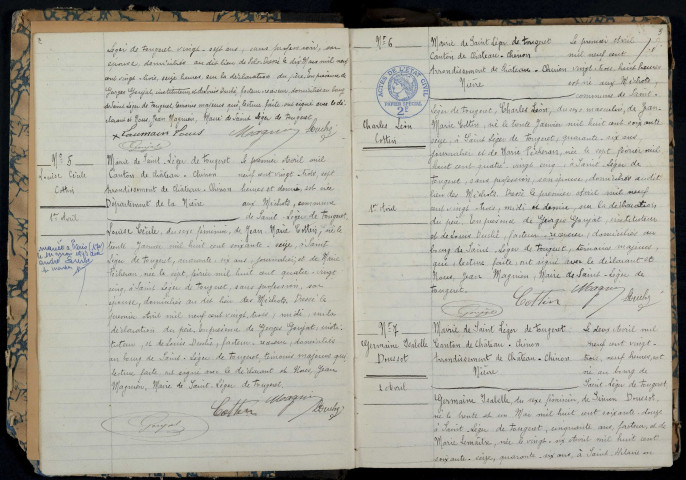 Léger de Fougeret vingt-sept ans, sans profession, son
épouse, domiciliés au dit lieu de
vingt-trois, seize heures, sur la déclaration du père. En présence de
Georges Goujat, instituteur, et de Louis Duché, facteur-receveur, domiciliés au bourg
de Saint-Léger de Fougeret, témoins majeurs qui, lecture faite ont signé avec le dé-
clarant et Nous, Jean Magnien, Maire de Saint-Léger de Fougeret.
Goujat
N° 5
Louise Cécile
Cottin
1er Avril
mariée à Paris
le
Mairie de Saint-Léger de Fougeret
Canton de Château-Chinon
Arrondissement de Château-Chinon
Département de la Nièvre
Le premier Avril mil
neuf cent vingt trois, onze
heures et demie, est née
aux Michots, commune
de Saint-Léger de Fougeret
Louise Cécile, du sexe féminin, de Jean Marie Cottin, né le
trente Janvier mil huit cent soixante-seize, à Saint
Léger de Fougeret, quarante-six ans, journalier, et de Marie
Pichereau, née le sept février mil huit cent quatre-vingt
cinq, à Saint-Léger de Fougeret, sans profession, son
épouse, domiciliés au dit lieu des Michots. Dressé le
premier Avril mil neuf cent vingt trois, midi, sur la
déclaration du père. En présence de Georges Goujat, insti-
tuteur, et de Louis Duché, facteur-receveur, domiciliés
au bourg de Saint-Léger de Fougeret, témoins majeurs qui,
lecture faite ont signé avec le déclarant et Nous, Jean
Magnien, Maire de Saint-Léger de Fougeret.
Cottin
Goujat
N° 6
Charles Léon
Cottin
1er Avril
ACTES DE L'ÉTAT CIVIL
PAPIER SPÉCIAL
2
Mairie de Saint Léger de Fougeret
Canton de Château-Chinon
Arrondissement de Château-Chinon
Nièvre
Le premier Avril
mil neuf cent
vingt-trois, onze heures
est né aux Michots,
commune de Saint-
Léger de Fougeret, Charles Léon, du sexe masculin, de Jean
Marie Cottin, né le trente Janvier mil huit cent soixante
seize, à Saint Léger de Fougeret, quarante-six ans,
journalier et de Marie Pichereau, née le sept février mil
huit cent quatre-vingt-cinq, à Saint-Léger de
Fougeret, sans profession, son épouse, domiciliés audit
lieu des Michots. Dressé le premier Avril mil neuf
cent vingt-trois, midi et demie, sur la déclaration
du père. En présence de Georges Goujat, instituteur
et de Louis Duché, facteur-receveur, domiciliés au
bourg de Saint-Léger de Fougeret, témoins majeurs,
qui, lecture faite ont signé avec le déclarant et
Nous, Jean Magnien, Maire de Saint-Léger de
Fougeret.
Cottin
Goujat
N° 7
Germaine Isabelle
Doussot
2 Avril
Mairie de Saint Léger de Fougeret
Canton de Château-Chinon
Arrondissement de Château-Chinon
Nièvre
Le deux Avril mil
neuf cent vingt-
trois, neuf heures, est
née au bourg de
Saint-Léger de Fougeret
Germaine Isabelle, du sexe féminin, de
Doussot,
né le trente et un Mai mil huit cent soixante-douze
à Saint-Léger de Fougeret, cinquante ans, facteur, et de
Marie Lemaître, née le vingt-six Avril mil huit cent
soixante-seize, quarante-six ans, à Saint-Hilaire en